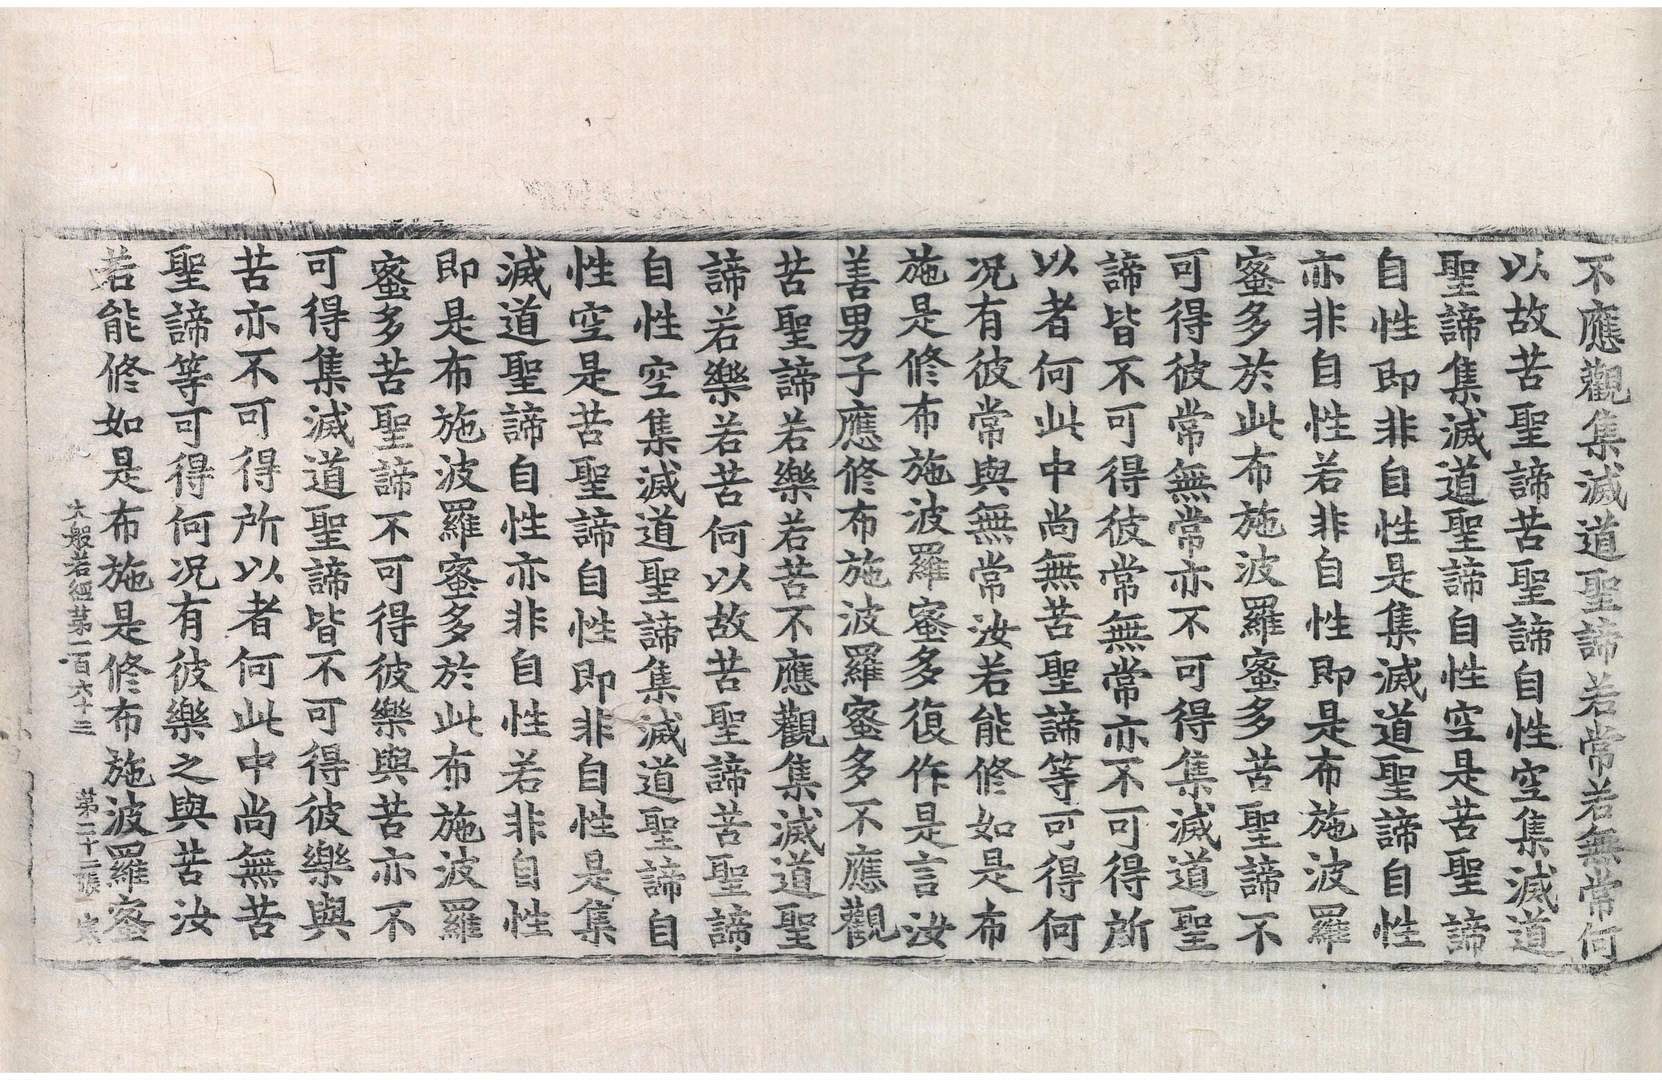 不應觀集滅道聖諦若常若無常何
以故苦聖諦苦聖諦自性空集滅道
聖諦集滅道聖諦自性空是苦聖諦
自性即非自性是集滅道聖諦自性
亦非自性若非自性即是布施波羅
蜜多於此布施波羅蜜多苦聖諦不
可得彼常無常亦不可得集滅道聖
諦皆不可得彼常無常亦不可得所
以者何此中尚無苦聖諦等可得何
况有彼常與無常汝若能修如是布
施是修布施波羅蜜多復作是言汝
善男子應修布施波羅蜜多不應觀
苦聖諦若樂若苦不應觀集滅道聖
諦若樂若苦何以故苦聖諦苦聖諦
自性空集滅道聖諦集滅道聖諦自
性空是苦聖諦自性即非自性是集
滅道聖諦自性亦非自性若非自性
即是布施波羅蜜多於此布施波羅
蜜多苦聖諦不可得彼樂與苦亦不
可得集滅道聖諦皆不可得彼樂與
苦亦不可得所以者何此中尚無苦
聖諦等可得何况有彼樂之與苦汝
若能修如是布施是修布施波羅蜜
大般若經第一百六十三 第二十二張